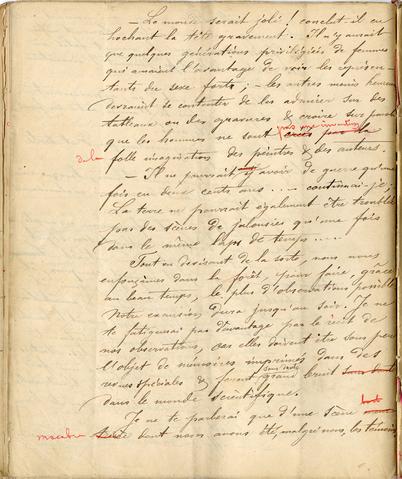 — Le monde serait joli! conclut-il en
hochant la tête gravement. Il n'y aurait
que quelques générations privilégiées de femmes
qui auraient l'avantage de voir les représen-
tants du sexe forts; — les autres moins heureuses
devraient se contenter de les admirer sur des
tableaux ou des gravures & croire sur parole
que les hommes ne sont pas une invention
de la folle imagination des peintres & des auteurs.
— Il ne pourrait y avoir de guerre qu'une
fois en deux cents ans ... — continuai-je;
La terre ne pourrait également être troublée
par des scènes de jalousies qu'une fois
dans le même laps de temps ....
Tout en devisant de la sorte, nous nous
enfonçâmes dans la forêt, pour faire, grâce
au beau temps, le plus d'observations possible.
Notre excursion dura jusqu'au soir. Je ne
te fatiguerai pas d'avantage par le récit de
nos observations, car elles doivent être sous peu
l'objet de mémoires imprimés dans des
revues spéciales & feront sans doute grand bruit
dans le monde scientifique.
Je ne te parlerai que d'une scène
macabre dont nous avons été, malgré nous, les témoins